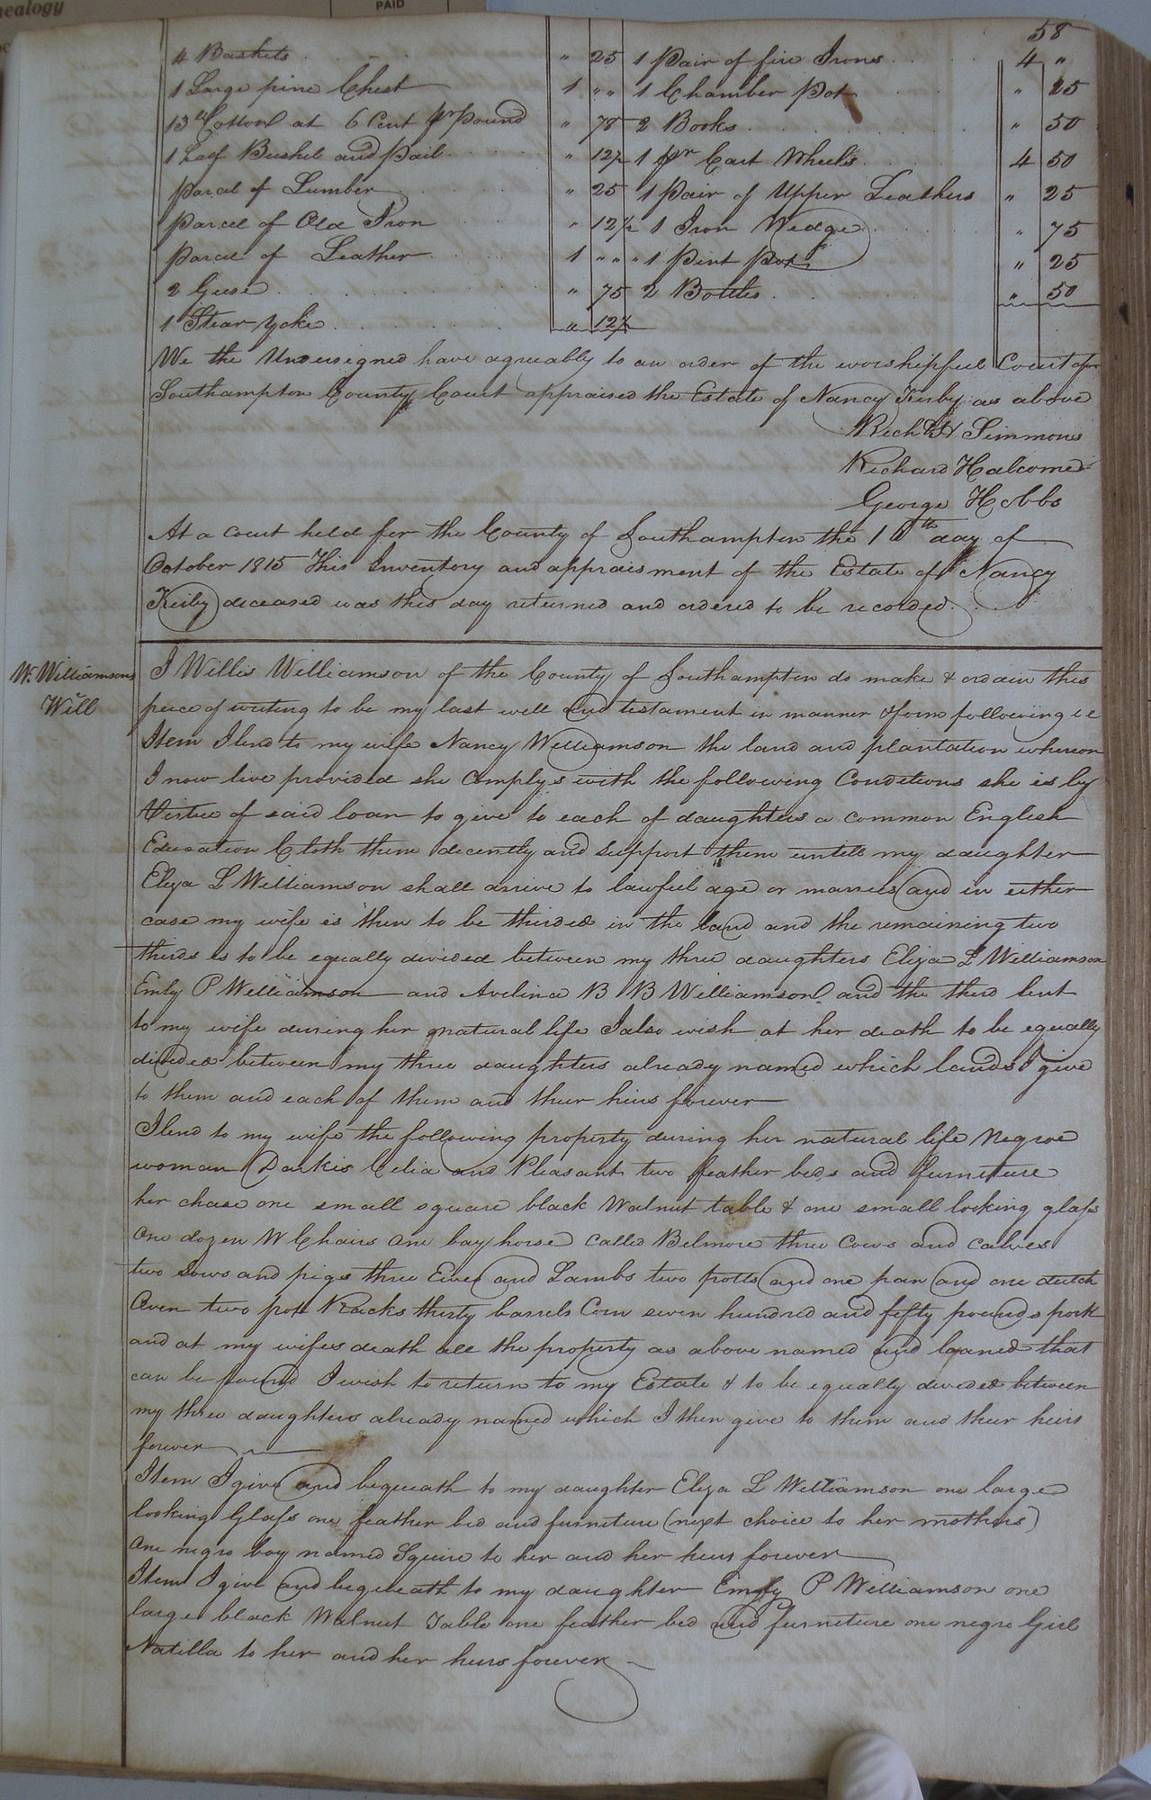 nealogy
PAID
58
4 Baskets " 25 1 Pair of fire Irons 4 "
1 Large pine Chest 1 " " 1 Chamber Pot " 25
13 lb Cotton at 6 Cent pr pound " 78 2 Books " 50
1 half Bushel and Pail " 12½ 1 pr Cart Wheels 4 50
Parcel of Lumber " 25 1 Pair of Upper Leathers " 25
Parcel of Old Iron " 12½ 1 Iron Wedge " 75
Parcel of Leather 1 " " " 1 Pint Pot " 25
2 Geese " 75 2 Bottles " 50
1 Stear Yoke " 12½
We the Undersigned have agreeably to an order of the worshipfull Court of
Southampton County Court appraised the Estate of Nancy Kirby as above
Richd H Simmons
Richard Halcome
George Hobbs
At a Court held for the County of Southampton the 16th day of
October 1815 This Inventory and appraisment of the Estate of Nancy
Kirby deceased was this day returned and ordered to be recorded
W. Williamsons
Will
I Willis Williamson of the County of Southampton do make & ordain this
peice of writing to be my last will and testament in manner & form following
Item I lend to my wife Nancy Williamson the land and plantation whereon
I now live provided she complys with the following Conditions she is by
Virtue of said loan to give to each of daughters a common English
Education Cloth them decently and Support them untill my daughter
Eliza L Williamson shall arive to lawful age or marries and in either
case my wife is then to be thirded in the land and the remaining two
thirds is to be equally divided between my three daughters Eliza L Williamson
Emily P Williamson and Avelina B B Williamson and the third lent
to my wife during her natural life I also wish at her death to be equally
divided between my three daughters already named which lands I give
to them and each of them and their heirs forever
I lend to my wife the following property during her natural life Negroe
woman Darkis Celia and Pleasant two feather beds and furniture
her chase one small square black Walnut table & one small looking glass
one dozen W Chairs one bay horse called Belmore three Cows and calves
two sows and pigs three Ewes and Lambs two potts and one pan and one dutch
Oven two pot Racks thirty barrels Corn seven hundred and fifty pounds pork
and at my wifes death all the property as above named and loaned that
can be found I wish to return to my Estate & to be equally divided between
my three daughters already named which I then give to them and their heirs
forever
Item I give and bequeath to my daughter Eliza L Williamson one large
looking Glass one feather bed and furniture (next choice to her mothers)
one negro boy named Squire to her and her heirs forever
Item I give and bequeath to my daughter Emily P Williamson one
large black Walnut Table one feather bed and furniture one negro Girl
Natilla to her and her heirs forever